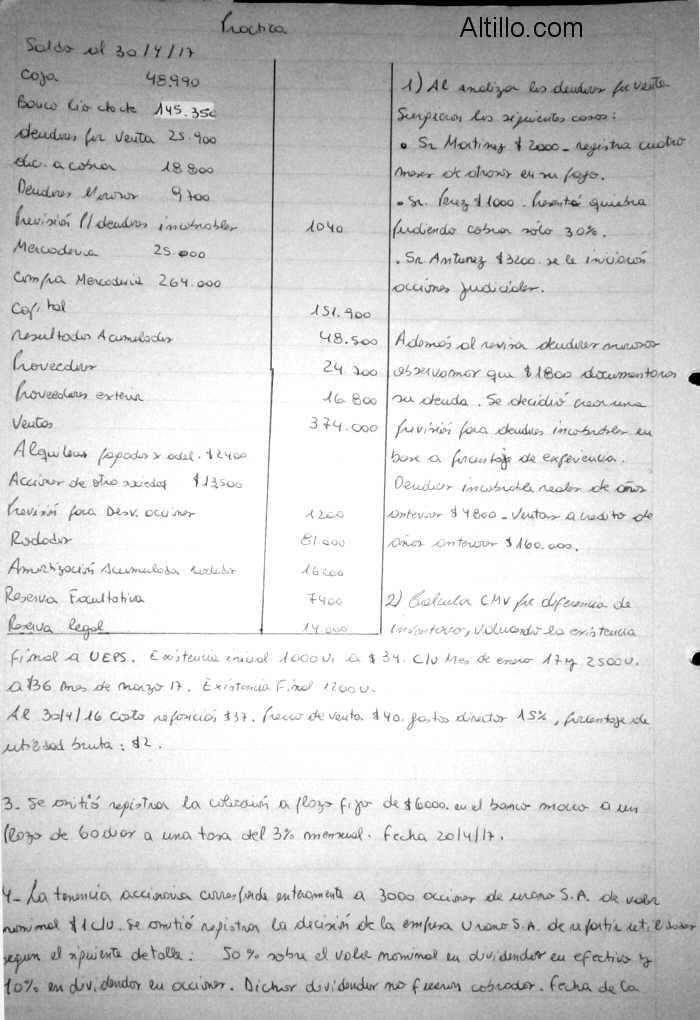 Altillo.com
Practica
Saldo al 30/4/17
Caja 48.990
Banco Rio cta cte 145.350
deudores por Venta 25.900
doc. a cobrar 18800
Deudores Morosos 9700
Previsión P/ deudores incobrables 1040
Mercaderia 25.000
Compra Mercaderia 264.000
Capital 151.900
resultados Acumulados 48.500
Proveedores
Proveedores exterior 16.800
Ventas 374.000
Alquileres pagados x adel. $2400
Acciones de otra sociedad $13500
Previsión para Desv. acciones 1200
Rodados 81.000
Amortización Acumulada rodados 16200
Reserva Facultativa 7400
Reserva legal 14.000
1) Al analizar los deudores por venta
Surgieron los siguientes casos:
• Sr Martinez $2000_ registra cuatro
meses de atraso en su pago.
• Sr. Perez $1000. Presentó quiebra
pudiendo cobrar sólo 30%.
. Sr Antunez $3200. se le iniciaron
acciones judiciales.
Además al revisar deudores morosos
observamos que $1800 documentaron
su deuda. Se decidió crear una
previsión para deudores incobrables en
base a porcentaje de experiencia.
Deudores incobrables reales de años
anterior $4800_ Ventas a credito de
años anterior $160.000.
2) Calcular CMV por diferencia de
inventario, valuando la existencia
final a UEPS. Existencia inicial 1000 U. a $34. C/U Mes de enero 17 y 2500 U.
a $36 mes de marzo 17. Existencia Final 1200 U.
Al 30/4/16 Costo reposición $37. Precio de venta $40. gastos directos 15%, porcentaje de
utilidad bruta: $2.
3. Se omitió registrar la colocación a plazo fijo de $6000. en el banco macro a un
plazo de 60 días a una tasa del 3% mensual. Fecha 20/4/17.
4_ La tenencia accionaria corresponde enteramente a 3000 acciones de urano S.A. de valor
nominal $1 C/U. Se omitió registrar la decisión de la empresa Urano S.A. de repartir utilidades
segun el siguiente detalle: 50% sobre el valor nominal en dividendos en efectivo y
10% en dividendos en acciones. Dichos dividendos no fueron cobrados. Fecha de la